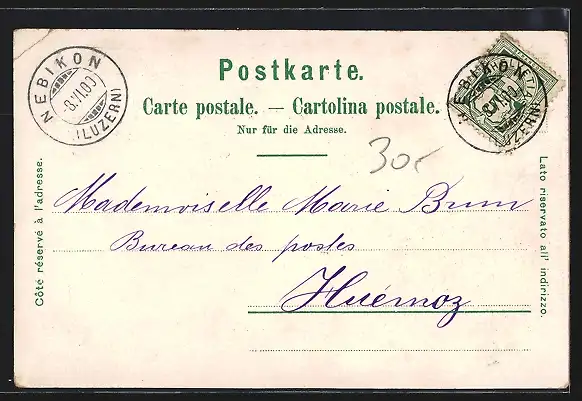 NEBIKON
8.VII.00
(LUZERN)
Postkarte.
Carte postale. — Cartolina postale.
Nur für die Adresse.
NEBIKON
8.VII.00
(LUZERN)
30.-
Côté réservé à l'adresse.
Lato riservato all' indirizzo.
Mademoiselle Marie Brun
Bureau des postes
Huémoz